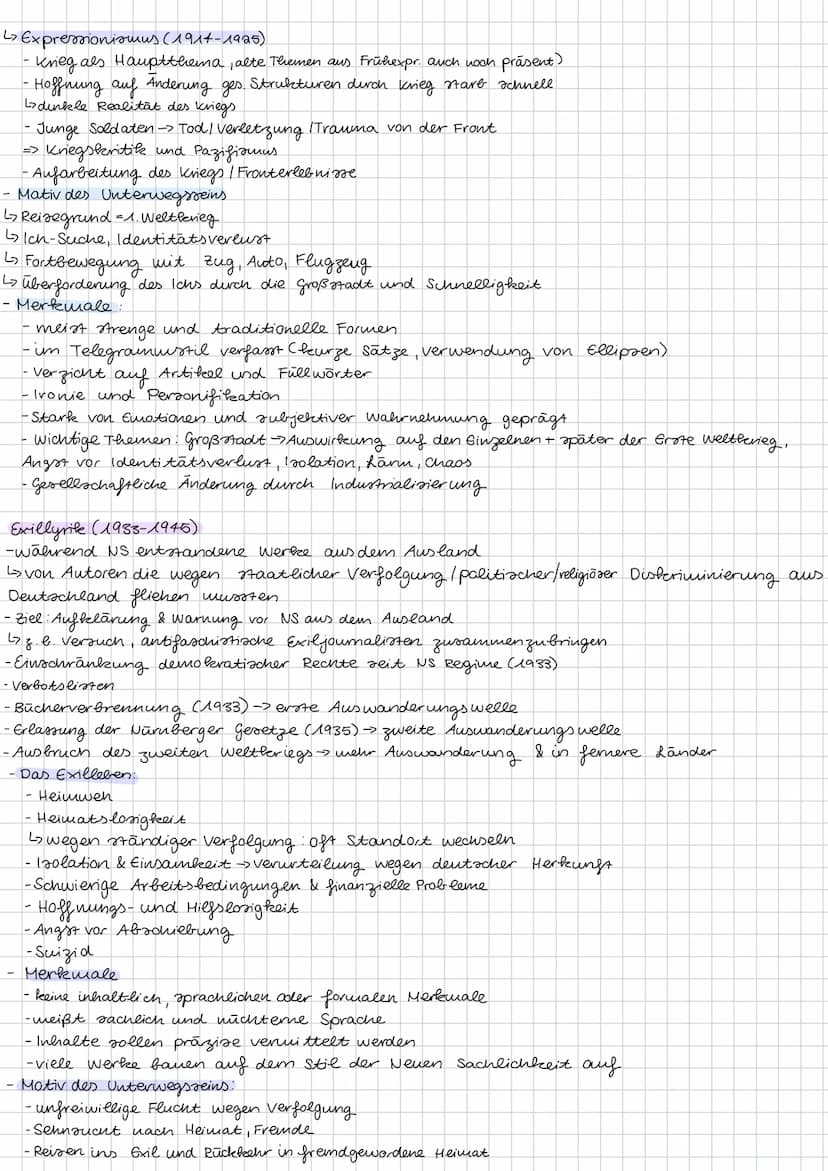 ↳ Expressionismus (1914-1925)
- Krieg als Hauptthema, alte Themen aus Frühexpr. auch noch präsent)
- Hoffnung auf Änderung ges. Strukturen durch Krieg starb schnell
↳ dunkle Realität des Kriegs
- Junge Soldaten → Tod/Verletzung/Trauma von der Front
=> Kriegskritik und Pazifismus
- Aufarbeitung des Kriegs/Fronterlebnisse
- Motiv des Unterwegsseins
↳ Reisegrund = 1. Weltkrieg
↳ Ich-Suche, Identitätsverlust
↳ Fortbewegung mit Zug, Auto, Flugzeug
↳ Überforderung des Ichs durch die Großstadt und Schnelligkeit
- Merkmale:
- meist strenge und traditionelle Formen
- im Telegrammstil verfasst (kurze Sätze, Verwendung von Ellipsen)
- Verzicht auf Artikel und Füllwörter
- Ironie und Personifikation
- Stark von Emotionen und subjektiver Wahrnehmung geprägt
- Wichtige Themen: Großstadt → Auswirkung auf den Einzelnen + später der Erste Weltkrieg,
Angst vor Identitätsverlust, Isolation, Lärm, Chaos
- Gesellschaftliche Änderung durch Industrialisierung
Exillyrik (1933-1945)
- während NS entstandene Werke aus dem Ausland
↳ von Autoren die wegen staatlicher Verfolgung/politischer/religiöser Diskriminierung aus
Deutschland fliehen mussten
- Ziel: Aufklärung & Warnung vor NS aus dem Ausland
↳ z.B. Versuch, antifaschistische Exiljournalisten zusammenzubringen
- Einschränkung demokratischer Rechte seit NS Regime (1933)
- Verbotslisten
- Bücherverbrennung (1933) → erste Auswanderungswelle
- Erlassung der Nürnberger Gesetze (1935) → zweite Auswanderungswelle
- Ausbruch des zweiten Weltkriegs → mehr Auswanderung & in fernere Länder
- Das Exilleben:
- Heimweh
- Heimatslosigkeit
↳ wegen ständiger Verfolgung: oft Standort wechseln
- Isolation & Einsamkeit → Verurteilung wegen deutscher Herkunft
- Schwierige Arbeitsbedingungen & finanzielle Probleme
- Hoffnungs- und Hilfslosigkeit
- Angst vor Abschiebung
- Suizid
- Merkmale
- keine inhaltlich, sprachlichen oder formalen Merkmale
- meißt sachlich und nüchterne Sprache
- Inhalte sollen präzise vermittelt werden
- viele Werke bauen auf dem Stil der Neuen Sachlichkeit auf
- Motiv des Unterwegsseins:
- unfreiwillige Flucht wegen Verfolgung
- Sehnsucht nach Heimat, Fremde
- Reisen ins Exil und Rückkehr in fremdgewordene Heimat